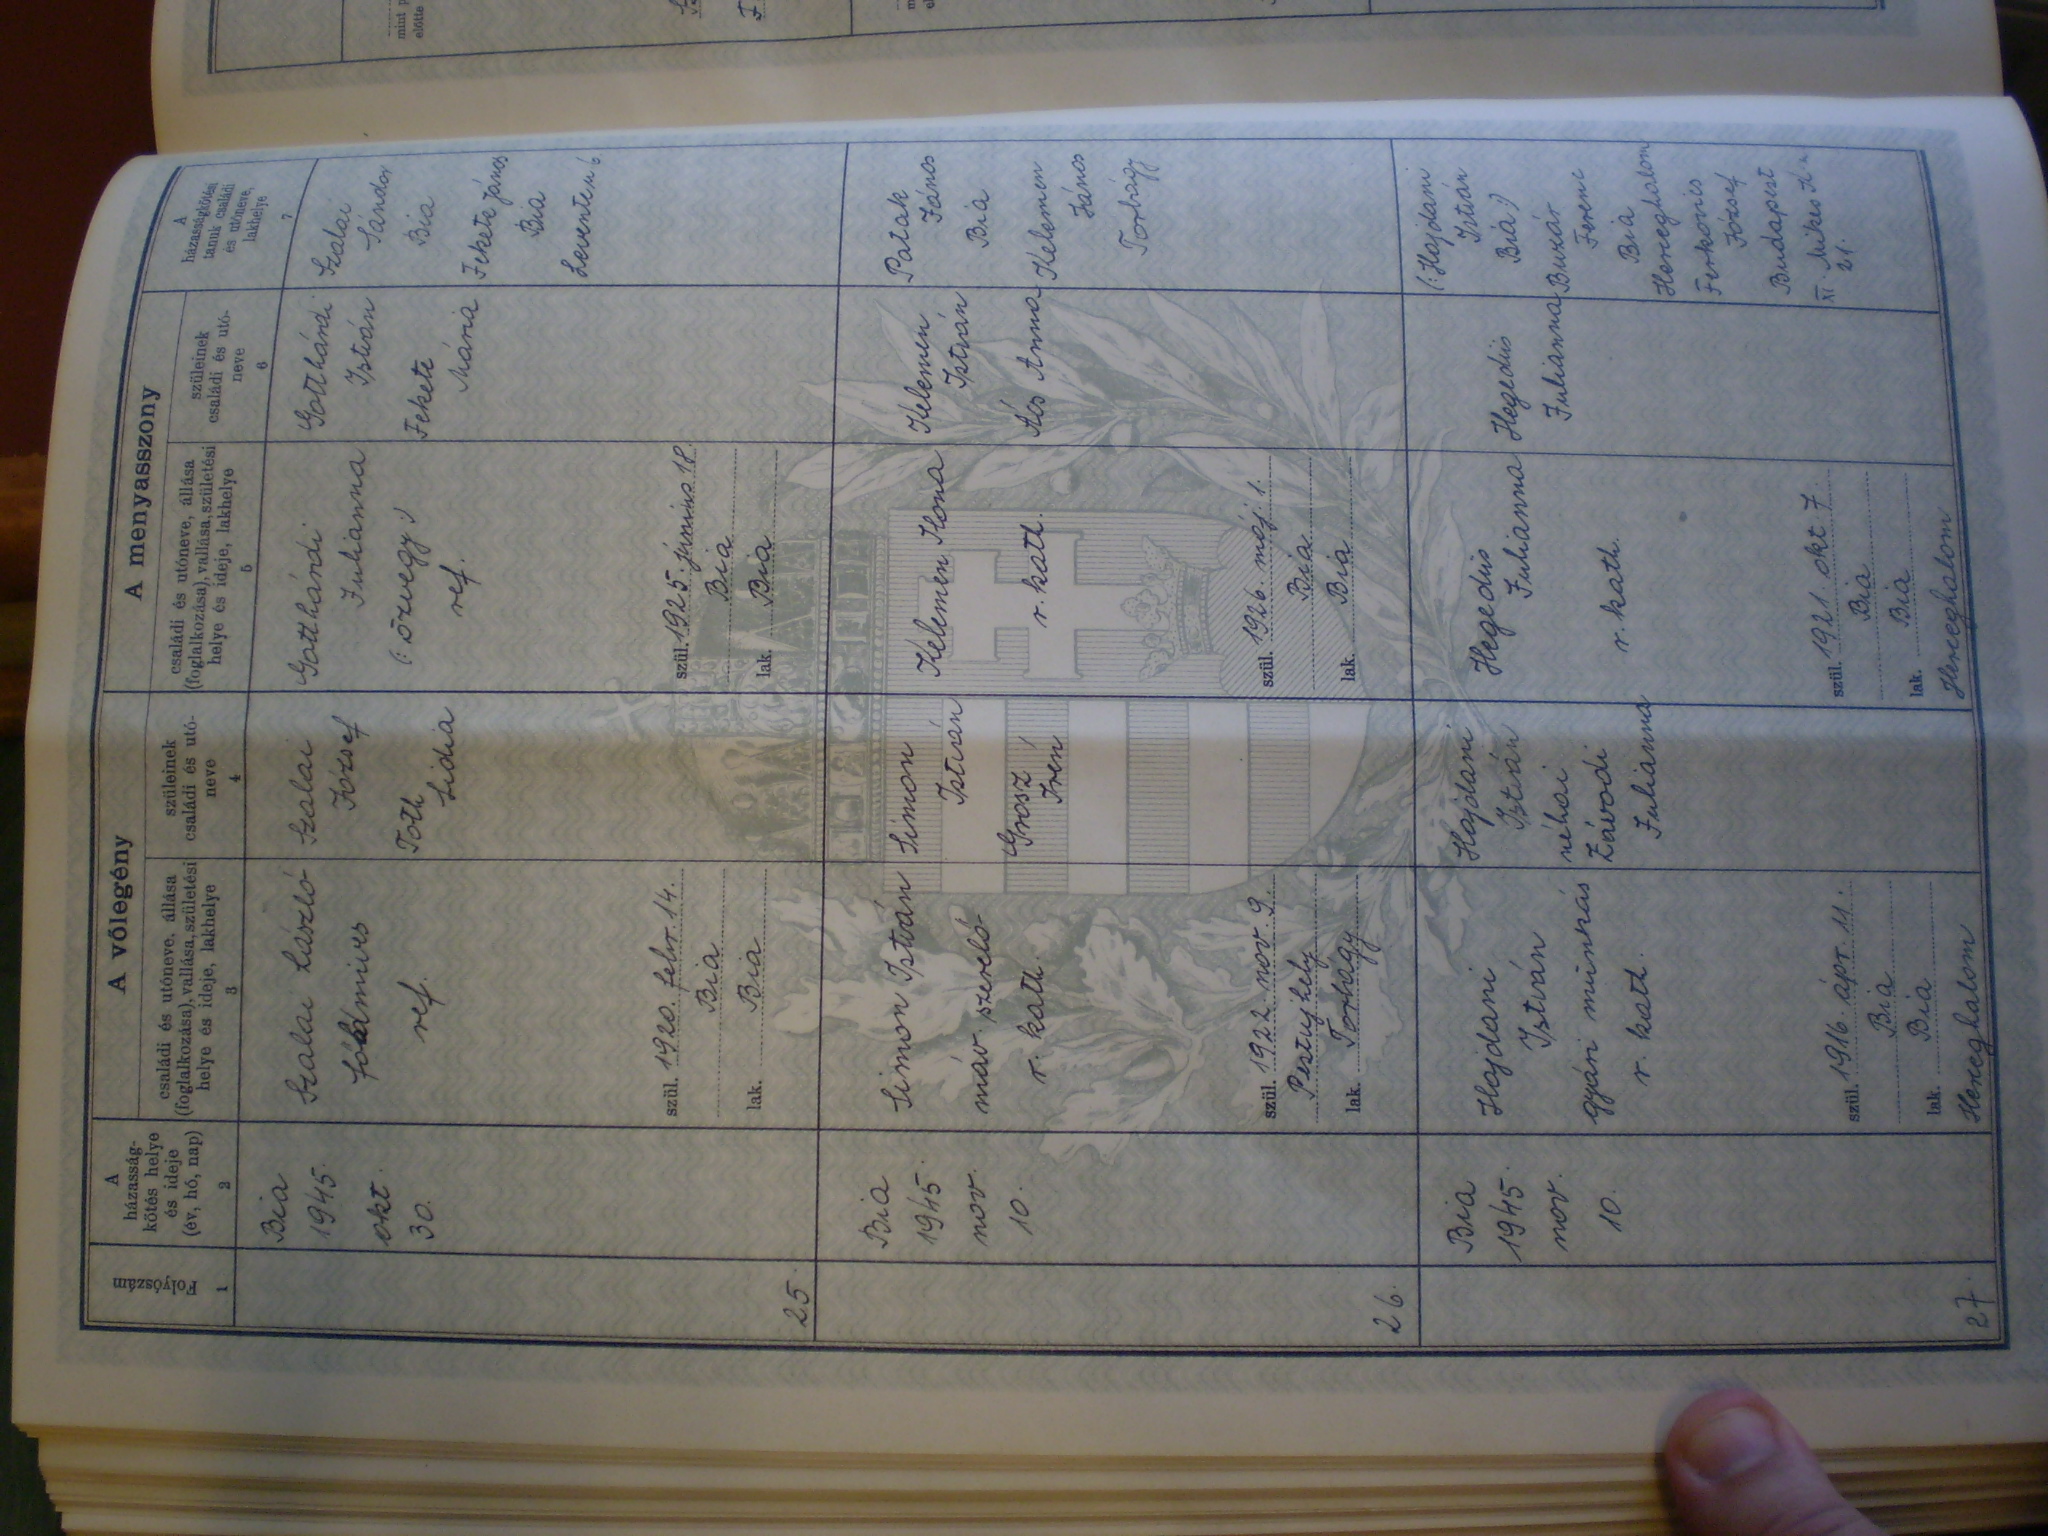 A vőlegény
A menyasszony
Folyószám
1
A
házasság-
kötés helye
és ideje
(év, hó, nap)
2
családi és utóneve, állása
(foglalkozása), vallása, születési
helye és ideje, lakhelye
3
szüleinek
családi és utó-
neve
4
családi és utóneve, állása
(foglalkozása), vallása, születési
helye és ideje, lakhelye
5
szüleinek
családi és utó-
neve
6
A
házasságkötési
tanuk családi
és utóneve,
lakhelye
7
25.
Bia
1945.
okt.
30.
Szalai László
ref.
szül. 1920. febr. 14.
Bia
lak. Bia
Szalai
József
Tóth
Lidia
Gotthárdi
Julianna
(: özvegy :)
ref.
szül. 1925. június 18.
Bia
lak. Bia
Gotthárdi
István
Fekete
Mária
Szalai
Sándor
Bia
Fekete János
Bia
Levente u 6.
26.
Bia
1945.
nov.
10.
Simon István
máv. szerelő
r. kath.
szül. 1922. nov. 9.
Pestujhely
lak. Torbágy
Simon
István
Grosz
Irén
Kelemen Ilona
r. kath.
szül. 1926. máj. 1.
Bia
lak. Bia
Kelemen
István
Ács Anna
Patak
János
Bia
Kelemen
János
Torbágy
27.
Bia
1945.
nov.
10.
Hajdani
István
gyári munkás
r. kath.
szül. 1916. ápr. 11.
Bia
lak. Bia
Herceghalom
Hajdani
István
néhai
Závodi
Julianna
Hegedüs
Julianna
r. kath.
szül. 1921. okt 7.
Bia
lak. Bia
Herceghalom
Hegedüs
Julianna
(: Hajdani
István
Bia :)
Ferenc
Bia
Herceghalom
József
Budapest
XI. Mikes K. u.
21.
mint
előtte